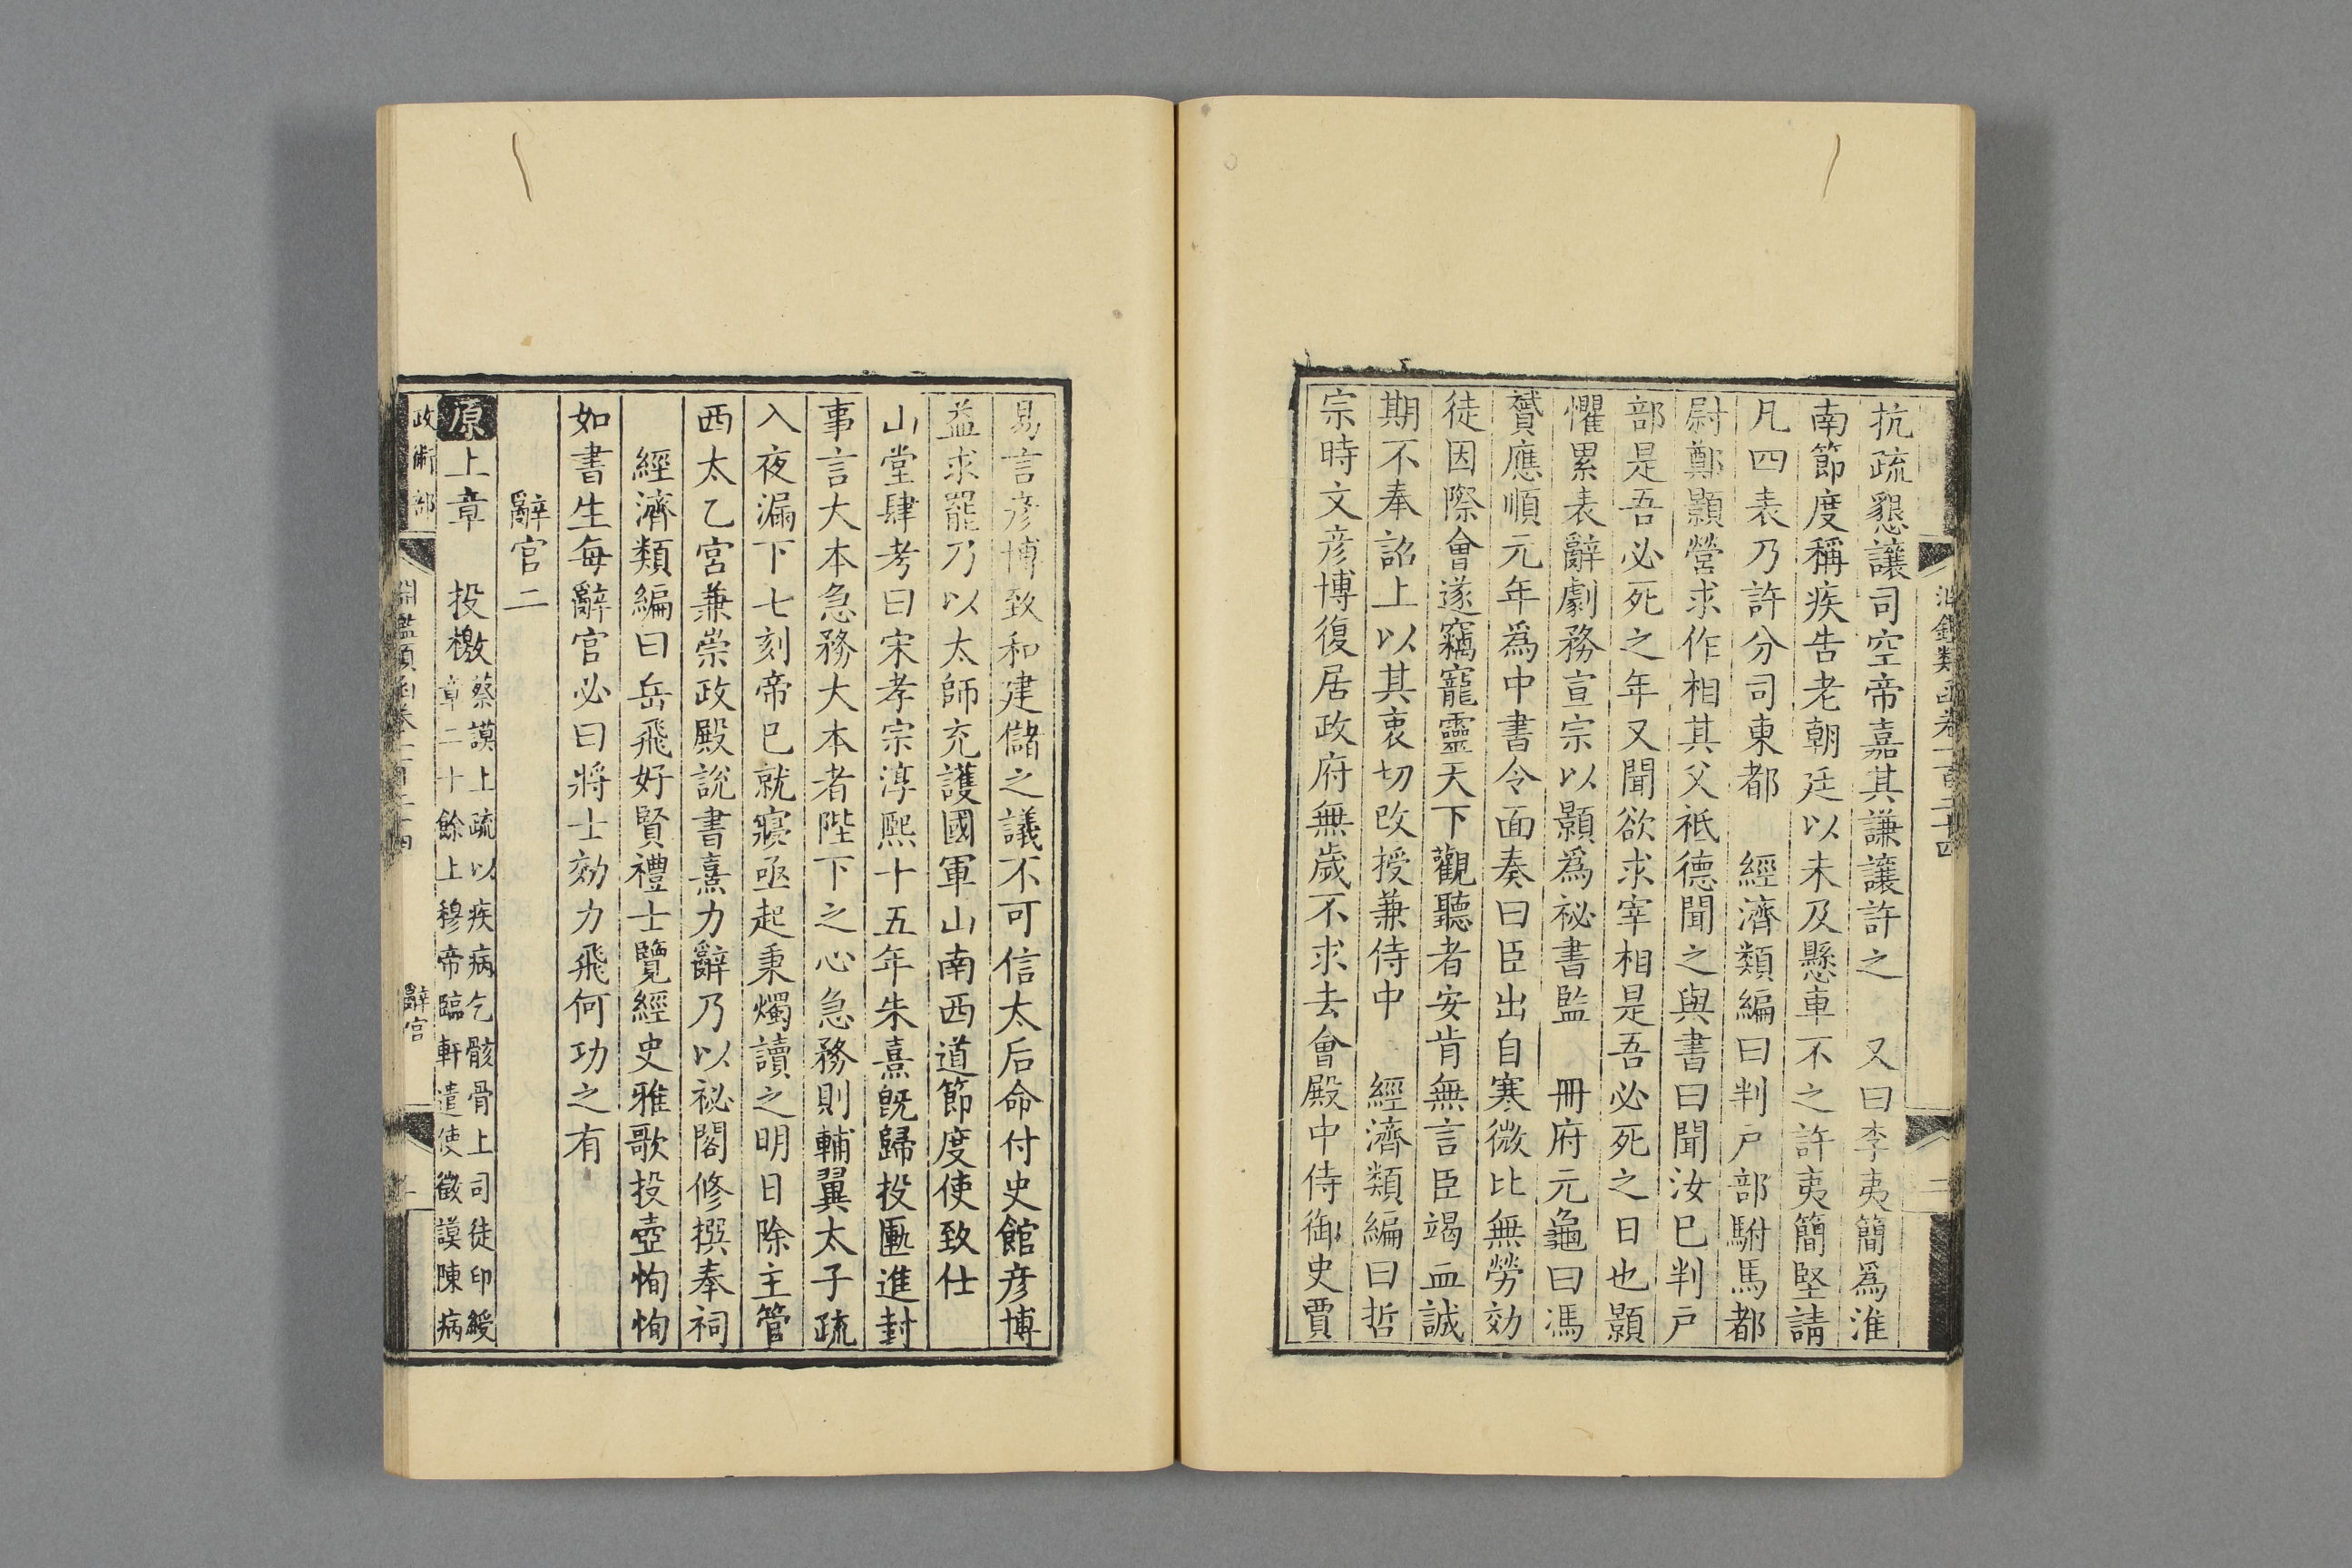 抗疏懇讓司空帝嘉其謙讓許之　又曰李夷簡爲淮
南節度稱疾告老朝廷以未及懸車不之許夷簡堅請
凡四表乃許分司東都　經濟類編曰判戸部駙馬都
尉鄭顥營求作相其父祗德聞之與書曰聞汝已判戸
部是吾必死之年又聞欲求宰相是吾必死之日也顥
懼累表辭劇務宣宗以顥爲祕書監　冊府元龜曰馮
贇應順元年爲中書令面奏曰臣出自寒微比無勞効
徒因際會遂竊寵靈天下觀聽者安肯無言臣竭血誠
期不奉詔上以其衷切改授兼侍中　經濟類編曰哲
宗時文彦博復居政府無歲不求去會殿中侍御史賈
易言彦博致和建儲之議不可信太后命付史館彦博
益求罷乃以太師充護國軍山南西道節度使致仕
山堂肆考曰宋孝宗淳熙十五年朱熹旣歸投匭進封
事言大本急務大本者陛下之心急務則輔翼太子疏
入夜漏下七刻帝已就寢亟起秉燭讀之明日除主管
西太乙宮兼崇政殿說書熹力辭乃以祕閣修撰奉祠
經濟類編曰岳飛好賢禮士覽經史雅歌投壺恂恂
如書生每辭官必曰將士効力飛何功之有
辭官二
原上章　投檄蔡謨上疏以疾病乞骸骨上司徒印綬
章二十餘上穆帝臨軒遣使徵謨陳病
政術部　淵鑑類函卷一百二十四　辭官